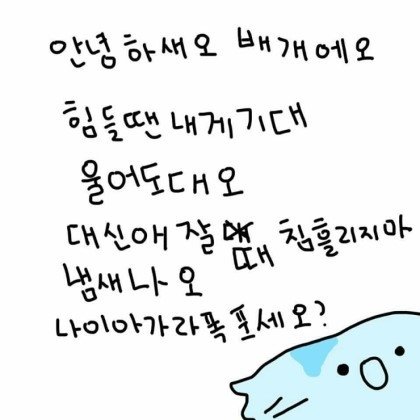 안녕하새오 배개에오
힘들땐내게기대
울어도대오
대신애 잘때 침흘리지마
냄새나오
나이아가라폭포세오?